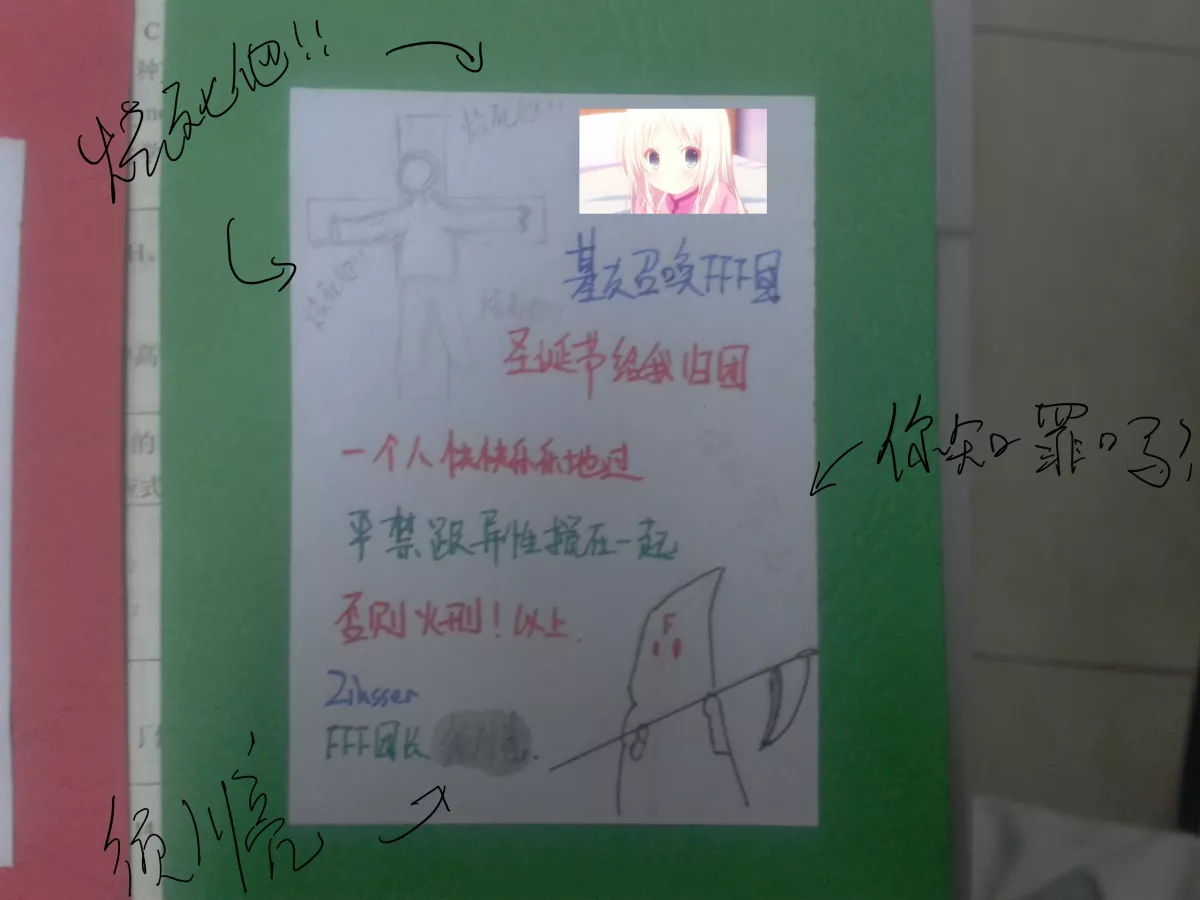 烧死他!!
烧死他!!
烧死他!!
烧死他!!
基友召唤FFF团
圣诞节给我归团
一个人快快乐乐地过
严禁跟异性搅在一起
否则火刑!以上.
F
Zihsser
FFF团长
你知罪吗?
须川亮